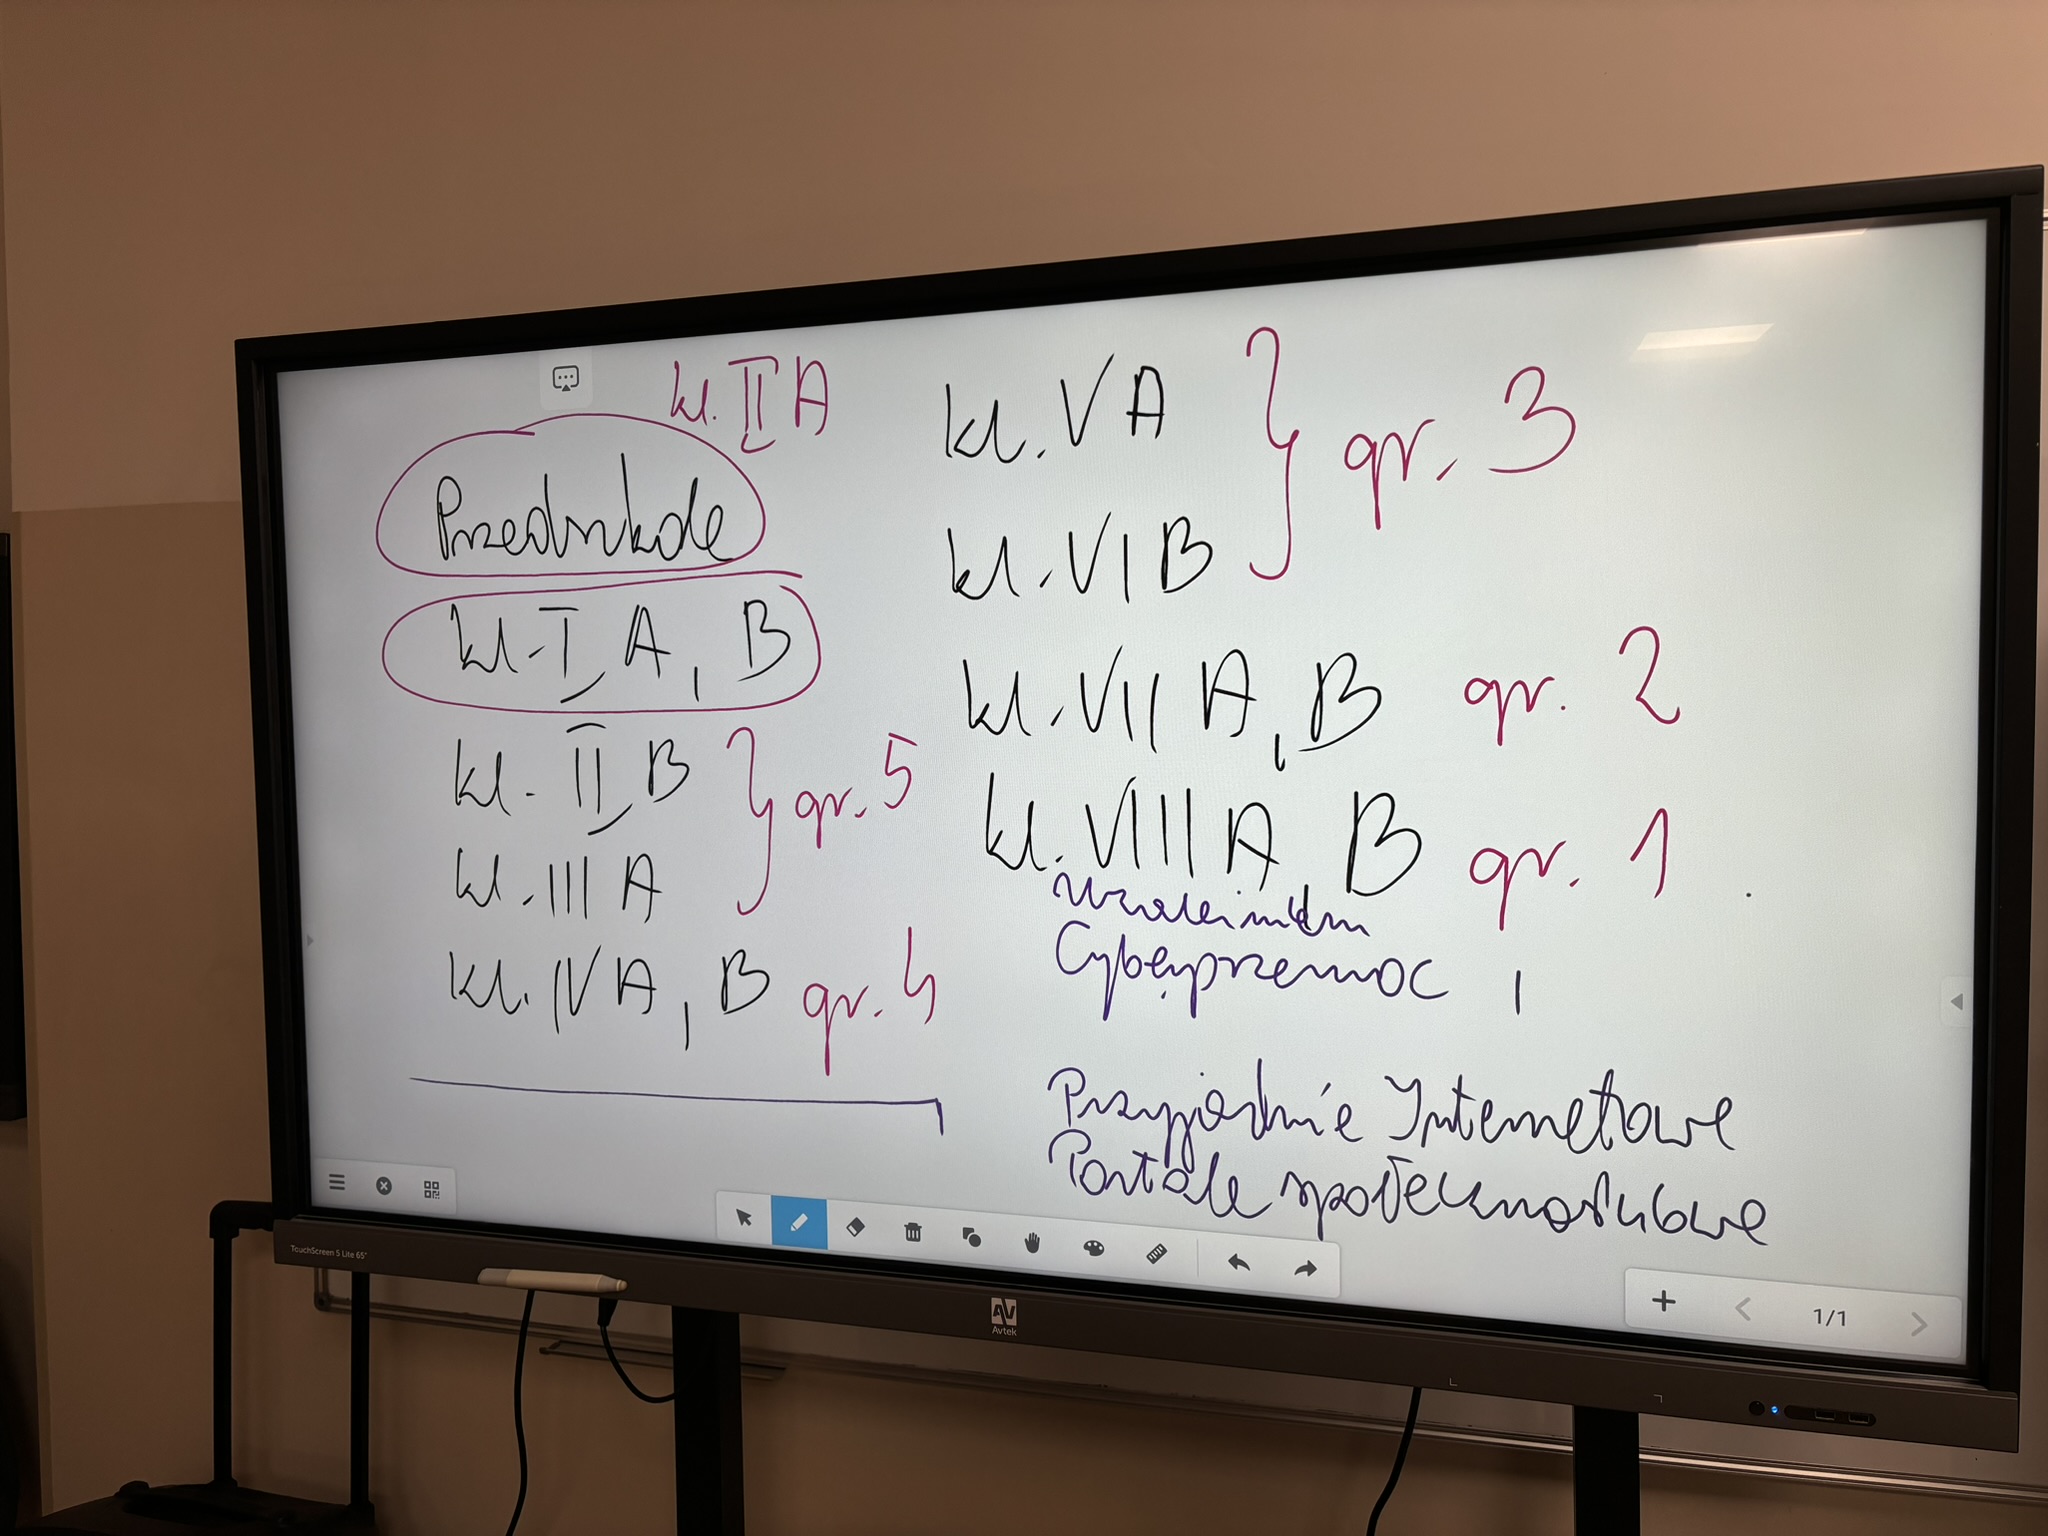 kl. II A
Przedszkole
kl. I A, B
kl. II B
kl. III A
gr. 5
kl. IV A, B gr. 4
kl. V A
kl. VI B
gr. 3
kl. VII A, B gr. 2
kl. VIII A, B gr. 1
Cyberprzemoc
Przyjaźnie Internetowe
Portale społecznościowe
1/1
TouchScreen 5 Lite 65"
AV
Avtek